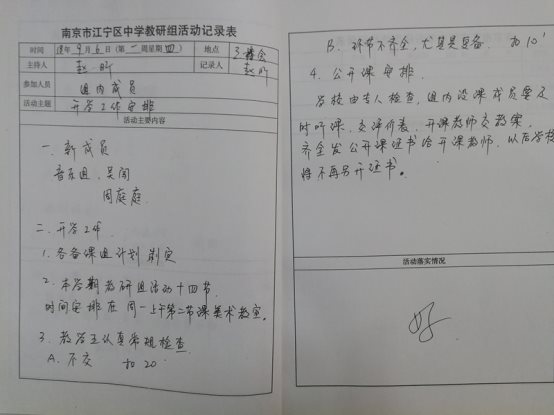 南京市江宁区中学教研组活动记录表
时间 18年9月6日(第一周星期四) 地点
主持人 赵昕 记录人 赵昕
参加人员 组内成员
活动主题 开学工作安排
活动主要内容
一. 新成员
音乐组, 吴闻
周庭庭
二. 开学工作
1. 各备课组计划制定
2. 本学期教研组活动十四节
时间安排在周一上午第二节课美术教室。
3. 教学五认真常规检查
A. 不交 扣20
B. 环节不齐全, 尤其是复备. 扣10'
4. 公开课安排.
学校由专人检查, 组内没课成员要及
时听课, 交评价表, 开课教师交教案
齐全发公开课证书给开课教师, 以后学校
将不再另开证书。
活动落实情况
好